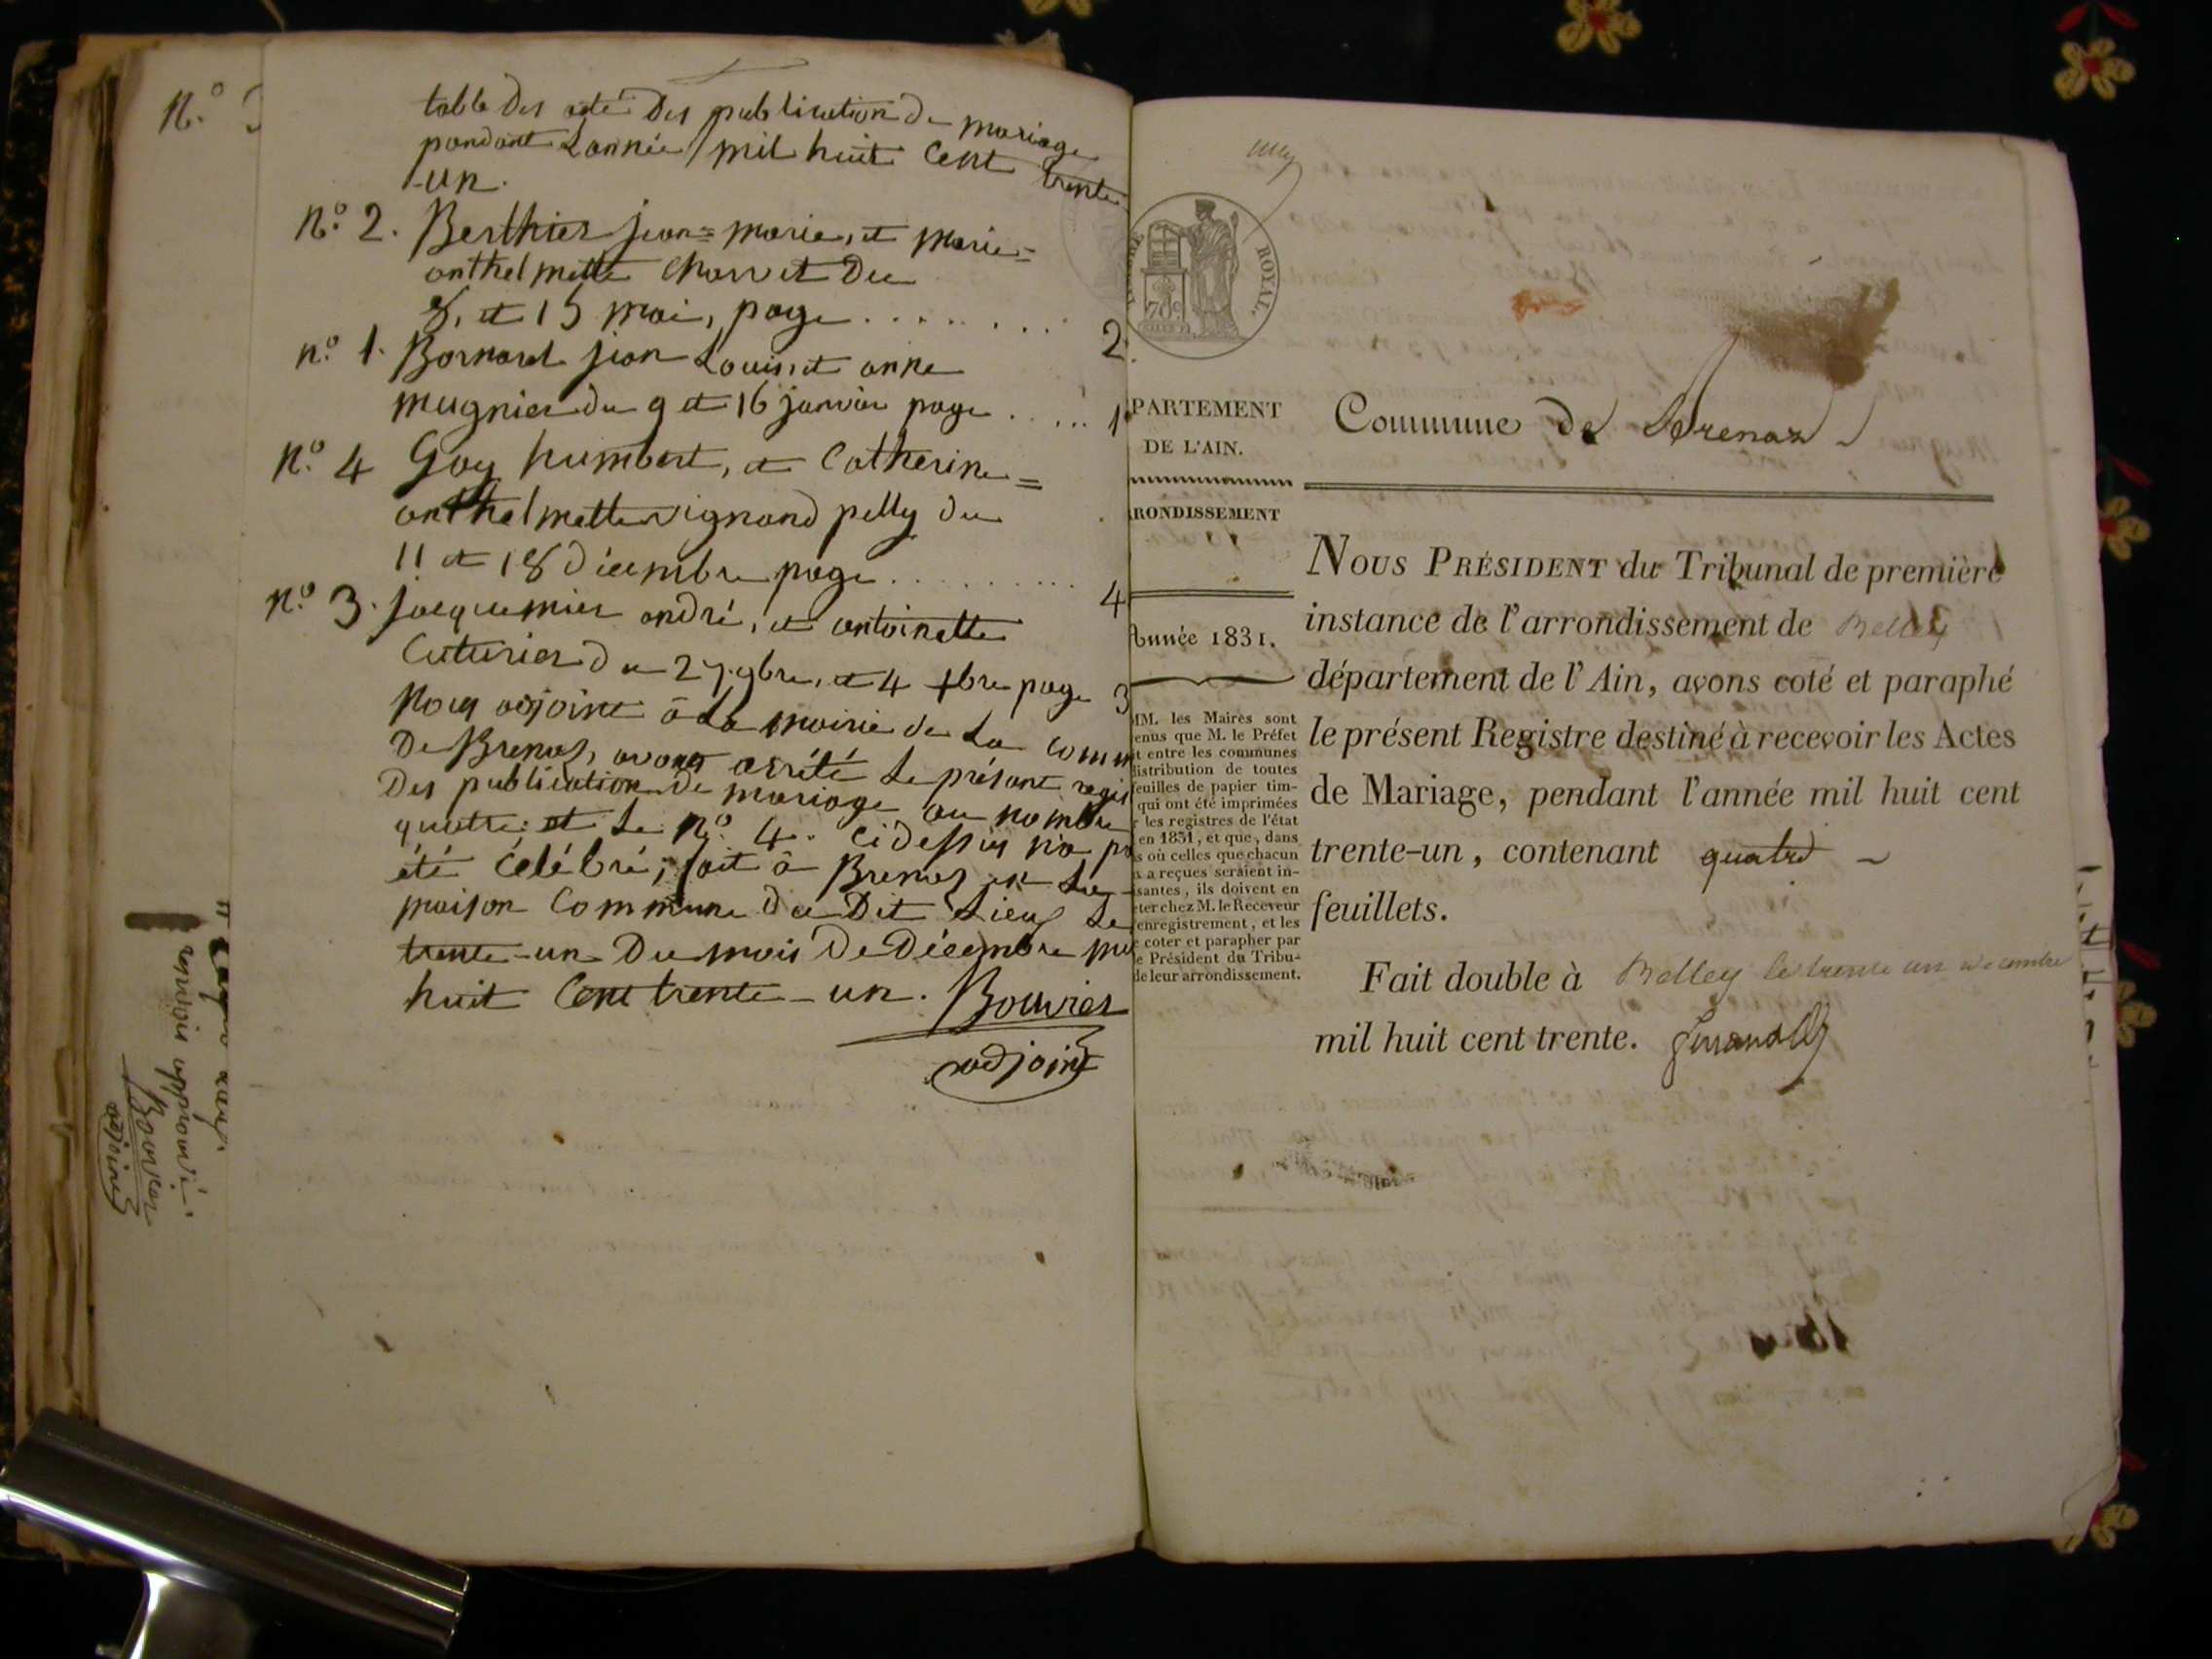 N.°
table des acte des publication de mariage
pendant Lannée mil huit Cent trente
-un.
N.° 2. Berthier jean=marie, et marie=
anthelmette Charvet du
8, et 15 mai, page . . . . . . . . . 2.
n.° 1. Bornard jean Louis, et anne
mugnier du 9 et 16 janvier page . . . . . 1
N.° 4 Goy humbert, et Catherine=
anthelmette vignand pelly du
11 et 18 décembre page . . . . . . . . . . 4
N.° 3. jacquemier andré, et antoinette
Cuturier du 27. 9bre, et 4 xbre page 3
Nous adjoint à La mairie de La comm
De Brenas, avons arrêté Le présent regis
Des publication de mariage au nombre
quatre; et Le N.° 4. cidessus n'a pas
été célébré; fait à Brenas en La
maison Commune du Dit Lieu, Le
trente-un Du mois De Décembre mil
huit Cent trente-un. Bouvier
adjoint
renvoi approuvé
Bouvier
adjoint
ROYAL.
70c
PARTEMENT
DE L'AIN.
RONDISSEMENT
Année 1831.
MM. les Maires sont
enus que M. le Préfet
t entre les communes
distribution de toutes
feuilles de papier tim-
qui ont été imprimées
r les registres de l'état
en 1831, et que, dans
s où celles que chacun
x a reçues seraient in-
santes, ils doivent en
eter chez M. le Receveur
enregistrement, et les
e coter et parapher par
e Président du Tribu-
de leur arrondissement.
Commune de Brenaz
NOUS PRÉSIDENT du Tribunal de première
instance de l'arrondissement de Belley
département de l'Ain, avons coté et paraphé
le présent Registre destiné à recevoir les Actes
de Mariage, pendant l'année mil huit cent
trente-un, contenant quatre
feuillets.
Fait double à Belley le trente un decembre
mil huit cent trente.